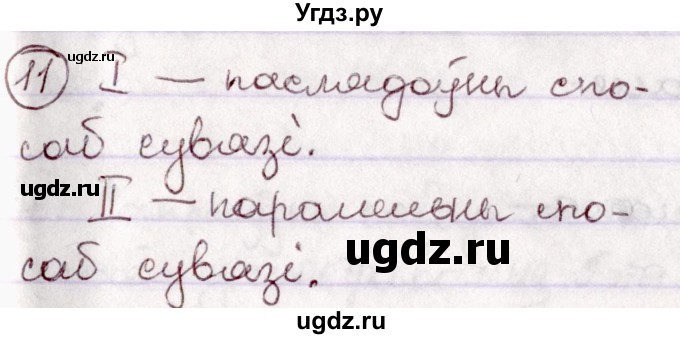 Угдз.ру
ugdz.ru
11 I — паслядоўны спо-
саб сувязі.
ugdz.ru
II — паралельны спо-
саб сувязі.
ugdz.ru
ugdz.ru
ugdz.ru